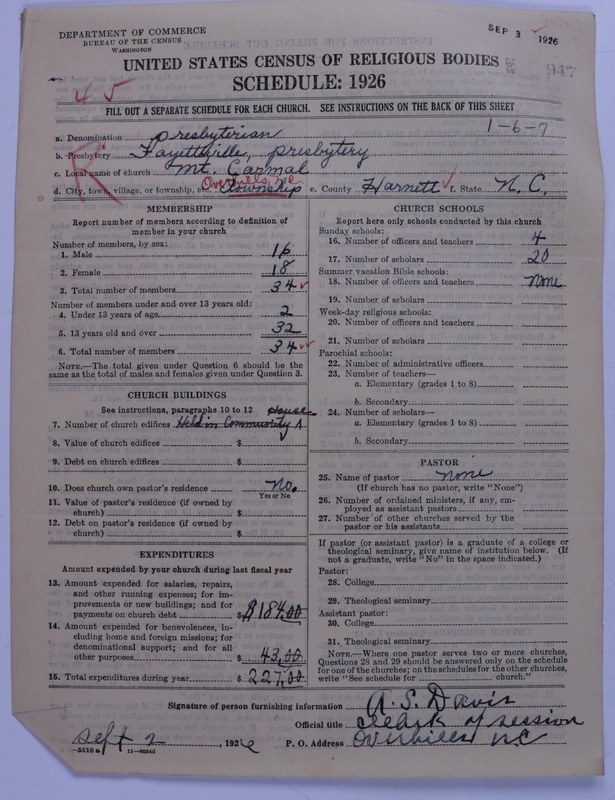 DEPARTMENT OF COMMERCE
BUREAU OF THE CENSUS
WASHINGTON
SEP 3 1926
UNITED STATES CENSUS OF RELIGIOUS BODIES
SCHEDULE: 1926
947
45
FILL OUT A SEPARATE SCHEDULE FOR EACH CHURCH. SEE INSTRUCTIONS ON THE BACK OF THIS SHEET
1-6-7
R
a. Denomination Presbyterian
b. Presbytery Fayetteville, presbytery
c. Local name of church Mt. Carmal
Overhills, N.C.
d. City, town, village, or township, etc. township e. County Harnett f. State N. C.
MEMBERSHIP
Report number of members according to definition of
member in your church
Number of members, by sex:
1. Male 16
2. Female 18
3. Total number of members 34
Number of members under and over 13 years old:
4. Under 13 years of age 2
5. 13 years old and over 32
6. Total number of members 34
NOTE.—The total given under Question 6 should be
same as the total of males and females given under Question 3.
CHURCH BUILDINGS
See instructions, paragraphs 10 to 12 House
7. Number of church edifices Held in Community ^
8. Value of church edifices $
9. Debt on church edifices $
10. Does church own pastor's residence No.
Yes or No
11. Value of pastor's residence (if owned by
church) $
12. Debt on pastor's residence (if owned by
church) $
EXPENDITURES
Amount expended by your church during last fiscal year
13. Amount expended for salaries, repairs,
and other running expenses; for im-
provements or new buildings; and for
payments on church debt $184,00
14. Amount expended for benevolences, in-
cluding home and foreign missions; for
denominational support; and for all
other purposes $ 43,00
15. Total expenditures during year $ 227,00
CHURCH SCHOOLS
Report here only schools conducted by this church
Sunday schools:
16. Number of officers and teachers 4
17. Number of scholars 20
Summer vacation Bible schools:
18. Number of officers and teachers none
19. Number of scholars
Week-day religious schools:
20. Number of officers and teachers
21. Number of scholars
Parochial schools:
22. Number of administrative officers
23. Number of teachers—
a. Elementary (grades 1 to 8)
b. Secondary
24. Number of scholars—
a. Elementary (grades 1 to 8)
b. Secondary
PASTOR
25. Name of pastor none
(If church has no pastor, write "None")
26. Number of ordained ministers, if any, em-
ployed as assistant pastors
27. Number of other churches served by the
pastor or his assistants
If pastor (or assistant pastor) is a graduate of a college or
theological seminary, give name of institution below. (If
not a graduate, write "No" in the space indicated.)
Pastor:
28. College
29. Theological seminary
Assistant pastor:
30. College
31. Theological seminary
NOTE.—Where one pastor serves two or more churches,
Questions 28 and 29 should be answered only on the schedule
for one of the churches; on the schedules for the other churches,
write "See schedule for church."
Signature of person furnishing information A. S. Davis
Official title Clerk of session
Sept 2, 1926 P. O. Address Overhills N.C.
—5518a 11—9054d